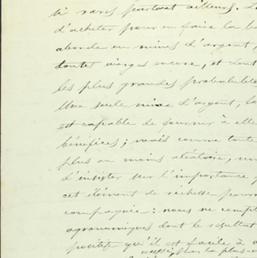 si rares partout ailleurs. L
d'acheter pour en faire la b
abonde en mines d'argent,
toutes vierges encore, et dont
les plus grandes probabilités
Une seule mine d'argent, la
est capable de fournir à elle
bénéfices; mais comme toute
plus ou moins aléatoire, no
d'insister sur l'importance
cet élément de richesse pour
compagnie: nous ne compt
agronomiques dont le résultat
positif qu'il est facile à
plus